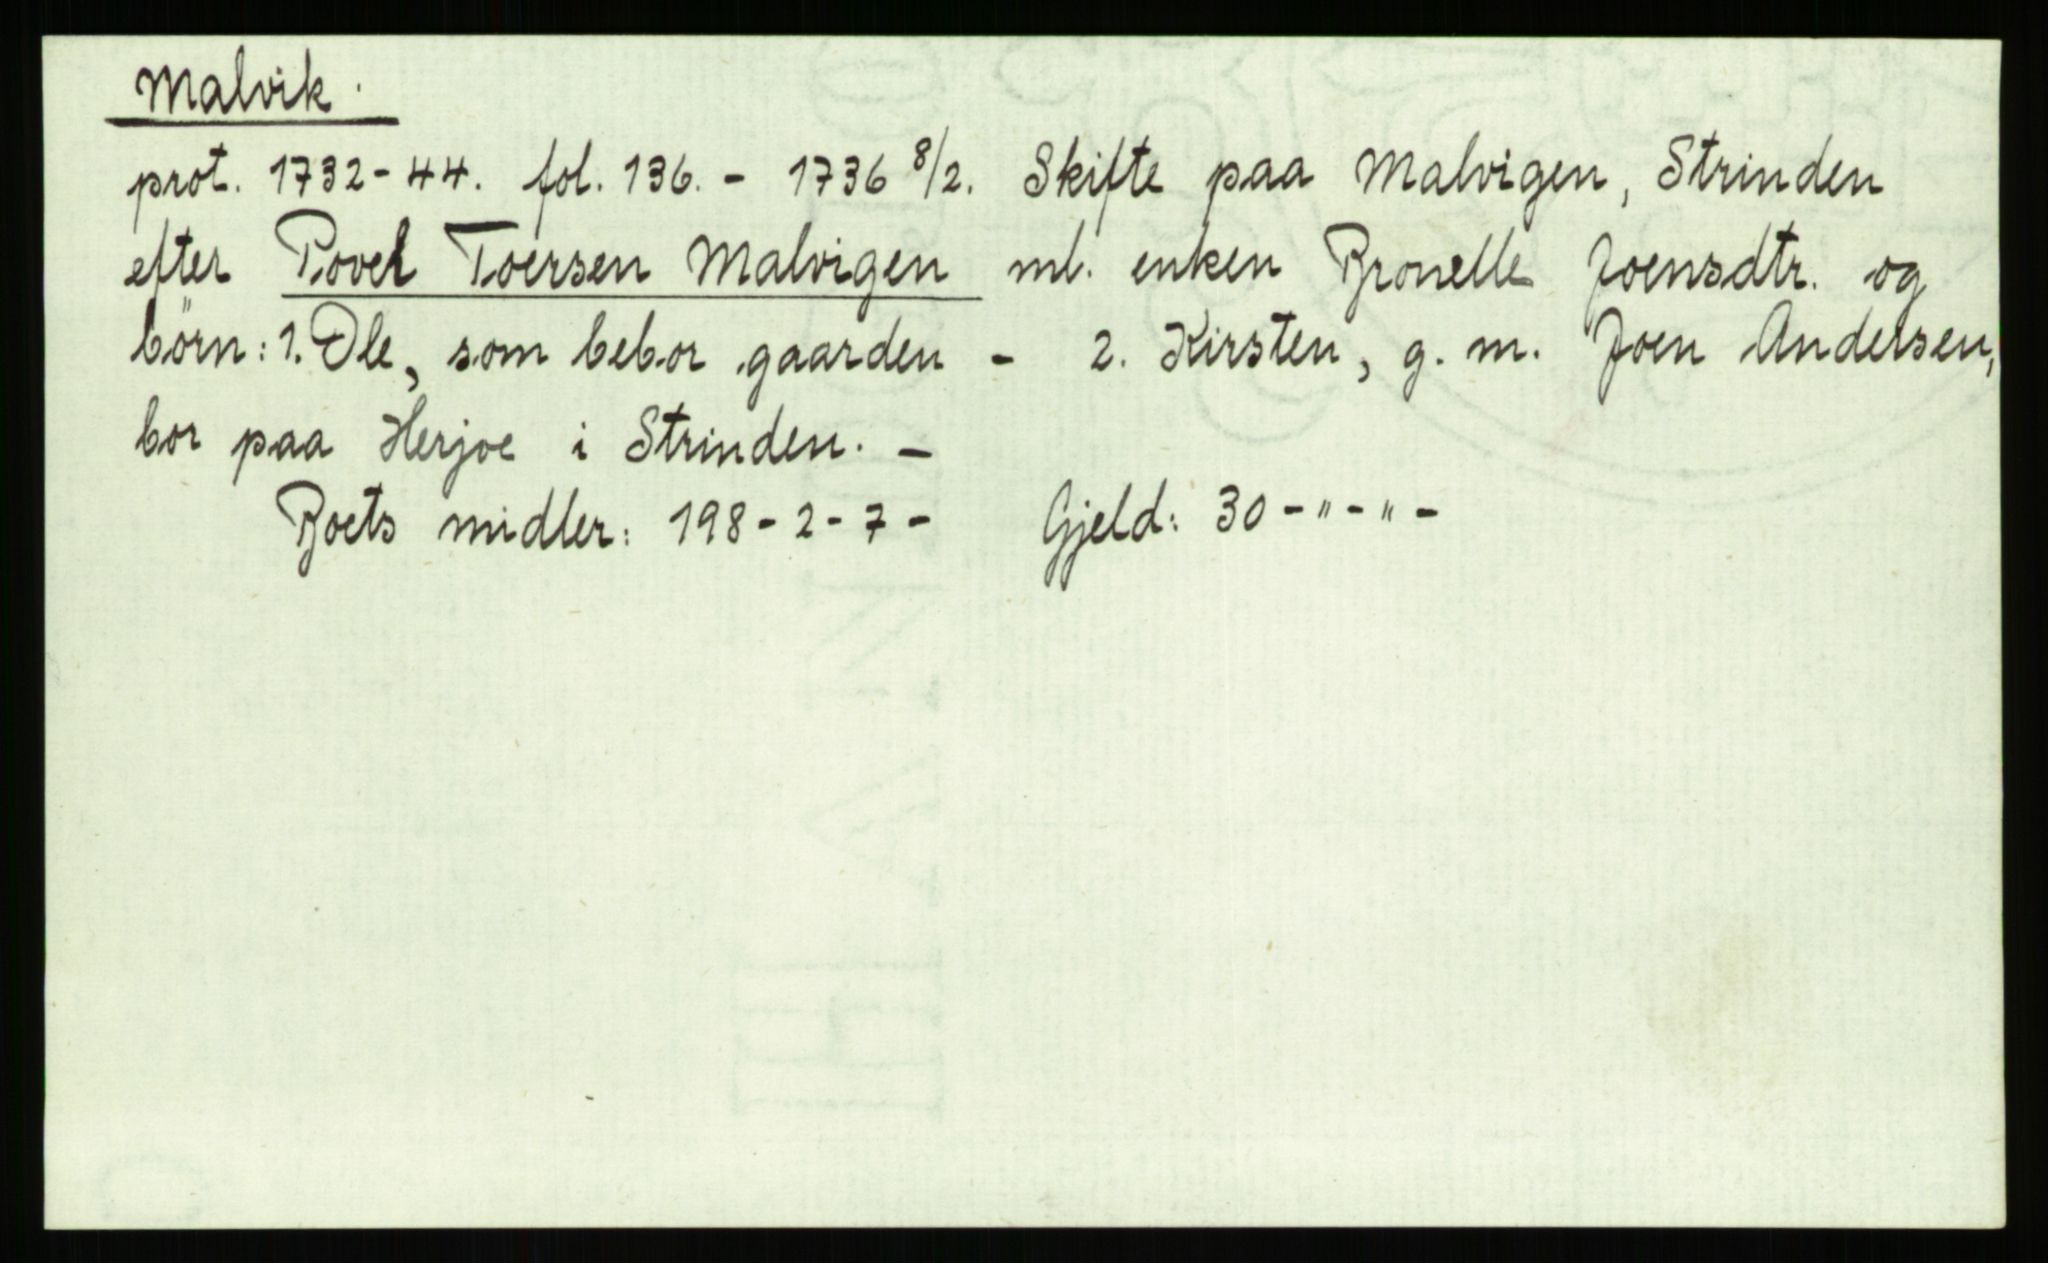 Malvik.
prot. 1732-44. fol. 136. - 1736 8/2. Skifte paa Malvigen, Strinden
efter Povel Toersen Malvigen ml. enken Bronelle Joensdtr. og
börn: 1. Ole, som bebor gaarden - 2. Kirsten, g. m. Joen Andersen,
bor paa Herjoe i Strinden. -
Boets midler: 198-2-7- Gjeld: 30-"-"-